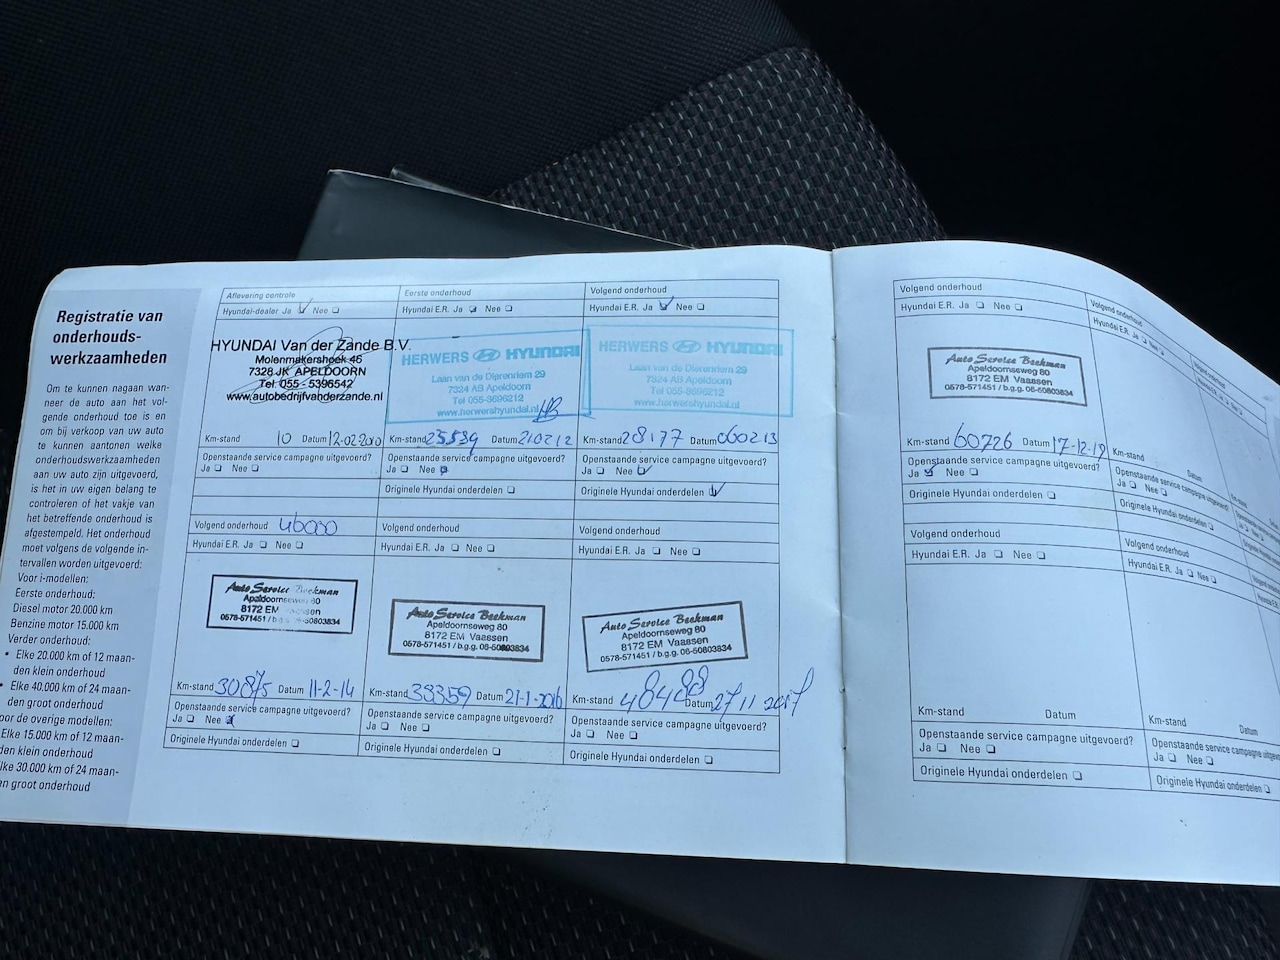 Registratie van
onderhouds-
werkzaamheden
Om te kunnen nagaan wan-
neer de auto aan het vol-
gende onderhoud toe is en
om bij verkoop van uw auto
te kunnen aantonen welke
onderhoudswerkzaamheden
aan uw auto zijn uitgevoerd,
is het in uw eigen belang te
controleren of het vakje van
het betreffende onderhoud is
afgestempeld. Het onderhoud
moet volgens de volgende in-
tervallen worden uitgevoerd:
Voor i-modellen:
Eerste onderhoud:
Diesel motor 20.000 km
Benzine motor 15.000 km
Verder onderhoud:
• Elke 20.000 km of 12 maan-
den klein onderhoud
• Elke 40.000 km of 24 maan-
den groot onderhoud
oor de overige modellen:
Elke 15.000 km of 12 maan-
den klein onderhoud
lke 30.000 km of 24 maan-
n groot onderhoud
Aflevering controle
Hyundai-dealer Ja Nee
HYUNDAI Van der Zande B.V.
Molenmakershoek 46
7328 JK APELDOORN
Tel. 055 - 5396542
www.autobedrijfvanderzande.nl
Km-stand 10 Datum 12-02-2010
Openstaande service campagne uitgevoerd?
Ja Nee
Eerste onderhoud
Hyundai E.R. Ja Nee
HERWERS HYUNDAI
Laan van de Dierenriem 29
7324 AB Apeldoorn
Tel 055-3696212
www.herwershyundai.nl
Km-stand 25539 Datum 210212
Openstaande service campagne uitgevoerd?
Ja Nee
Originele Hyundai onderdelen
Volgend onderhoud
Hyundai E.R. Ja Nee
HERWERS HYUNDAI
Laan van de Dierenriem 29
7324 AB Apeldoorn
Tel 055-3696212
www.herwershyundai.nl
Km-stand 28177 Datum 060213
Openstaande service campagne uitgevoerd?
Ja Nee
Originele Hyundai onderdelen
Volgend onderhoud
Hyundai E.R. Ja Nee
Auto Service Beekman
Apeldoornseweg 80
8172 EM Vaassen
0578-571451 / b.g.g. 06-50803834
Km-stand 30875 Datum 11-2-14
Openstaande service campagne uitgevoerd?
Ja Nee
Originele Hyundai onderdelen
Volgend onderhoud
Hyundai E.R. Ja Nee
Auto Service Beekman
Apeldoornseweg 80
8172 EM Vaassen
0578-571451 / b.g.g. 06-50803834
Km-stand 38359 Datum 21-1-2016
Openstaande service campagne uitgevoerd?
Ja Nee
Originele Hyundai onderdelen
Volgend onderhoud
Hyundai E.R. Ja Nee
Auto Service Beekman
Apeldoornseweg 80
8172 EM Vaassen
0578-571451 / b.g.g. 06-50803834
Km-stand Datum 27 11 2017
Openstaande service campagne uitgevoerd?
Ja Nee
Originele Hyundai onderdelen
Volgend onderhoud
Hyundai E.R. Ja Nee
Auto Service Beekman
Apeldoornseweg 80
8172 EM Vaassen
0578-571451 / b.g.g. 06-50803834
Km-stand 60726 Datum 17-12-19
Openstaande service campagne uitgevoerd?
Ja Nee
Originele Hyundai onderdelen
Volgend onderhoud
Hyundai E.R. Ja Nee
Km-stand Datum
Openstaande service campagne uitgevoerd?
Ja Nee
Originele Hyundai onderdelen
Volgend onderhoud
Hyundai E.R. Ja Nee
Km-stand Datum
Openstaande service campagne uitgevoerd?
Ja Nee
Originele Hyundai onderdelen
Volgend onderhoud
Hyundai E.R. Ja Nee
Km-stand Datum
Openstaande service campagne
Ja Nee
Originele Hyundai onderdelen